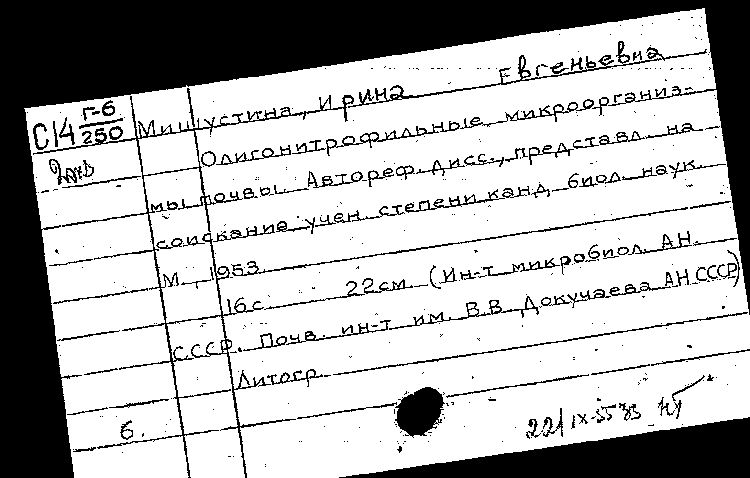 С14 Г-6/250
Мишустина, Ирина Евгеньевна
Олигонитрофильные микроорганиз-
мы почвы. Автореф. дисс., представл. на
соискание учен. степени канд. биол. наук.
М., 1953
16 с. 22 см. (Ин-т микробиол. АН.
СССР. Почв. ин-т им. В.В. Докучаева АН СССР)
Литогр.
б.